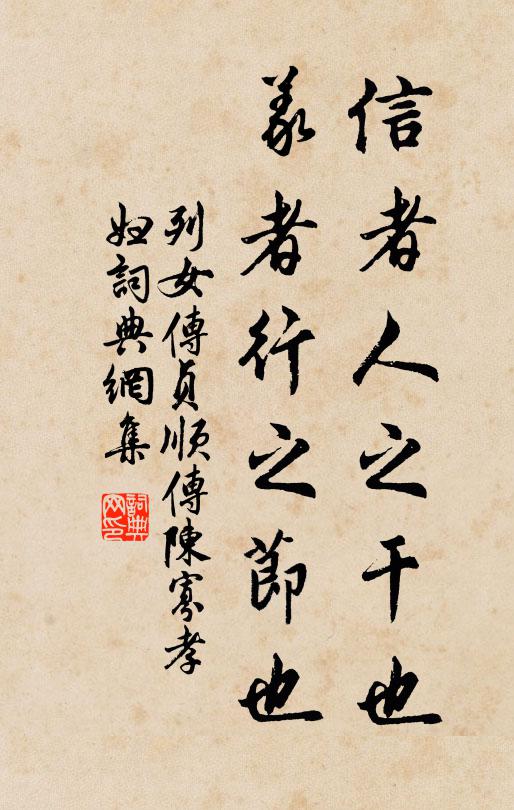 信者人之干也
義者行之節也
列女傳貞順傳陳寡孝
婦詞典網集
詞典
网印